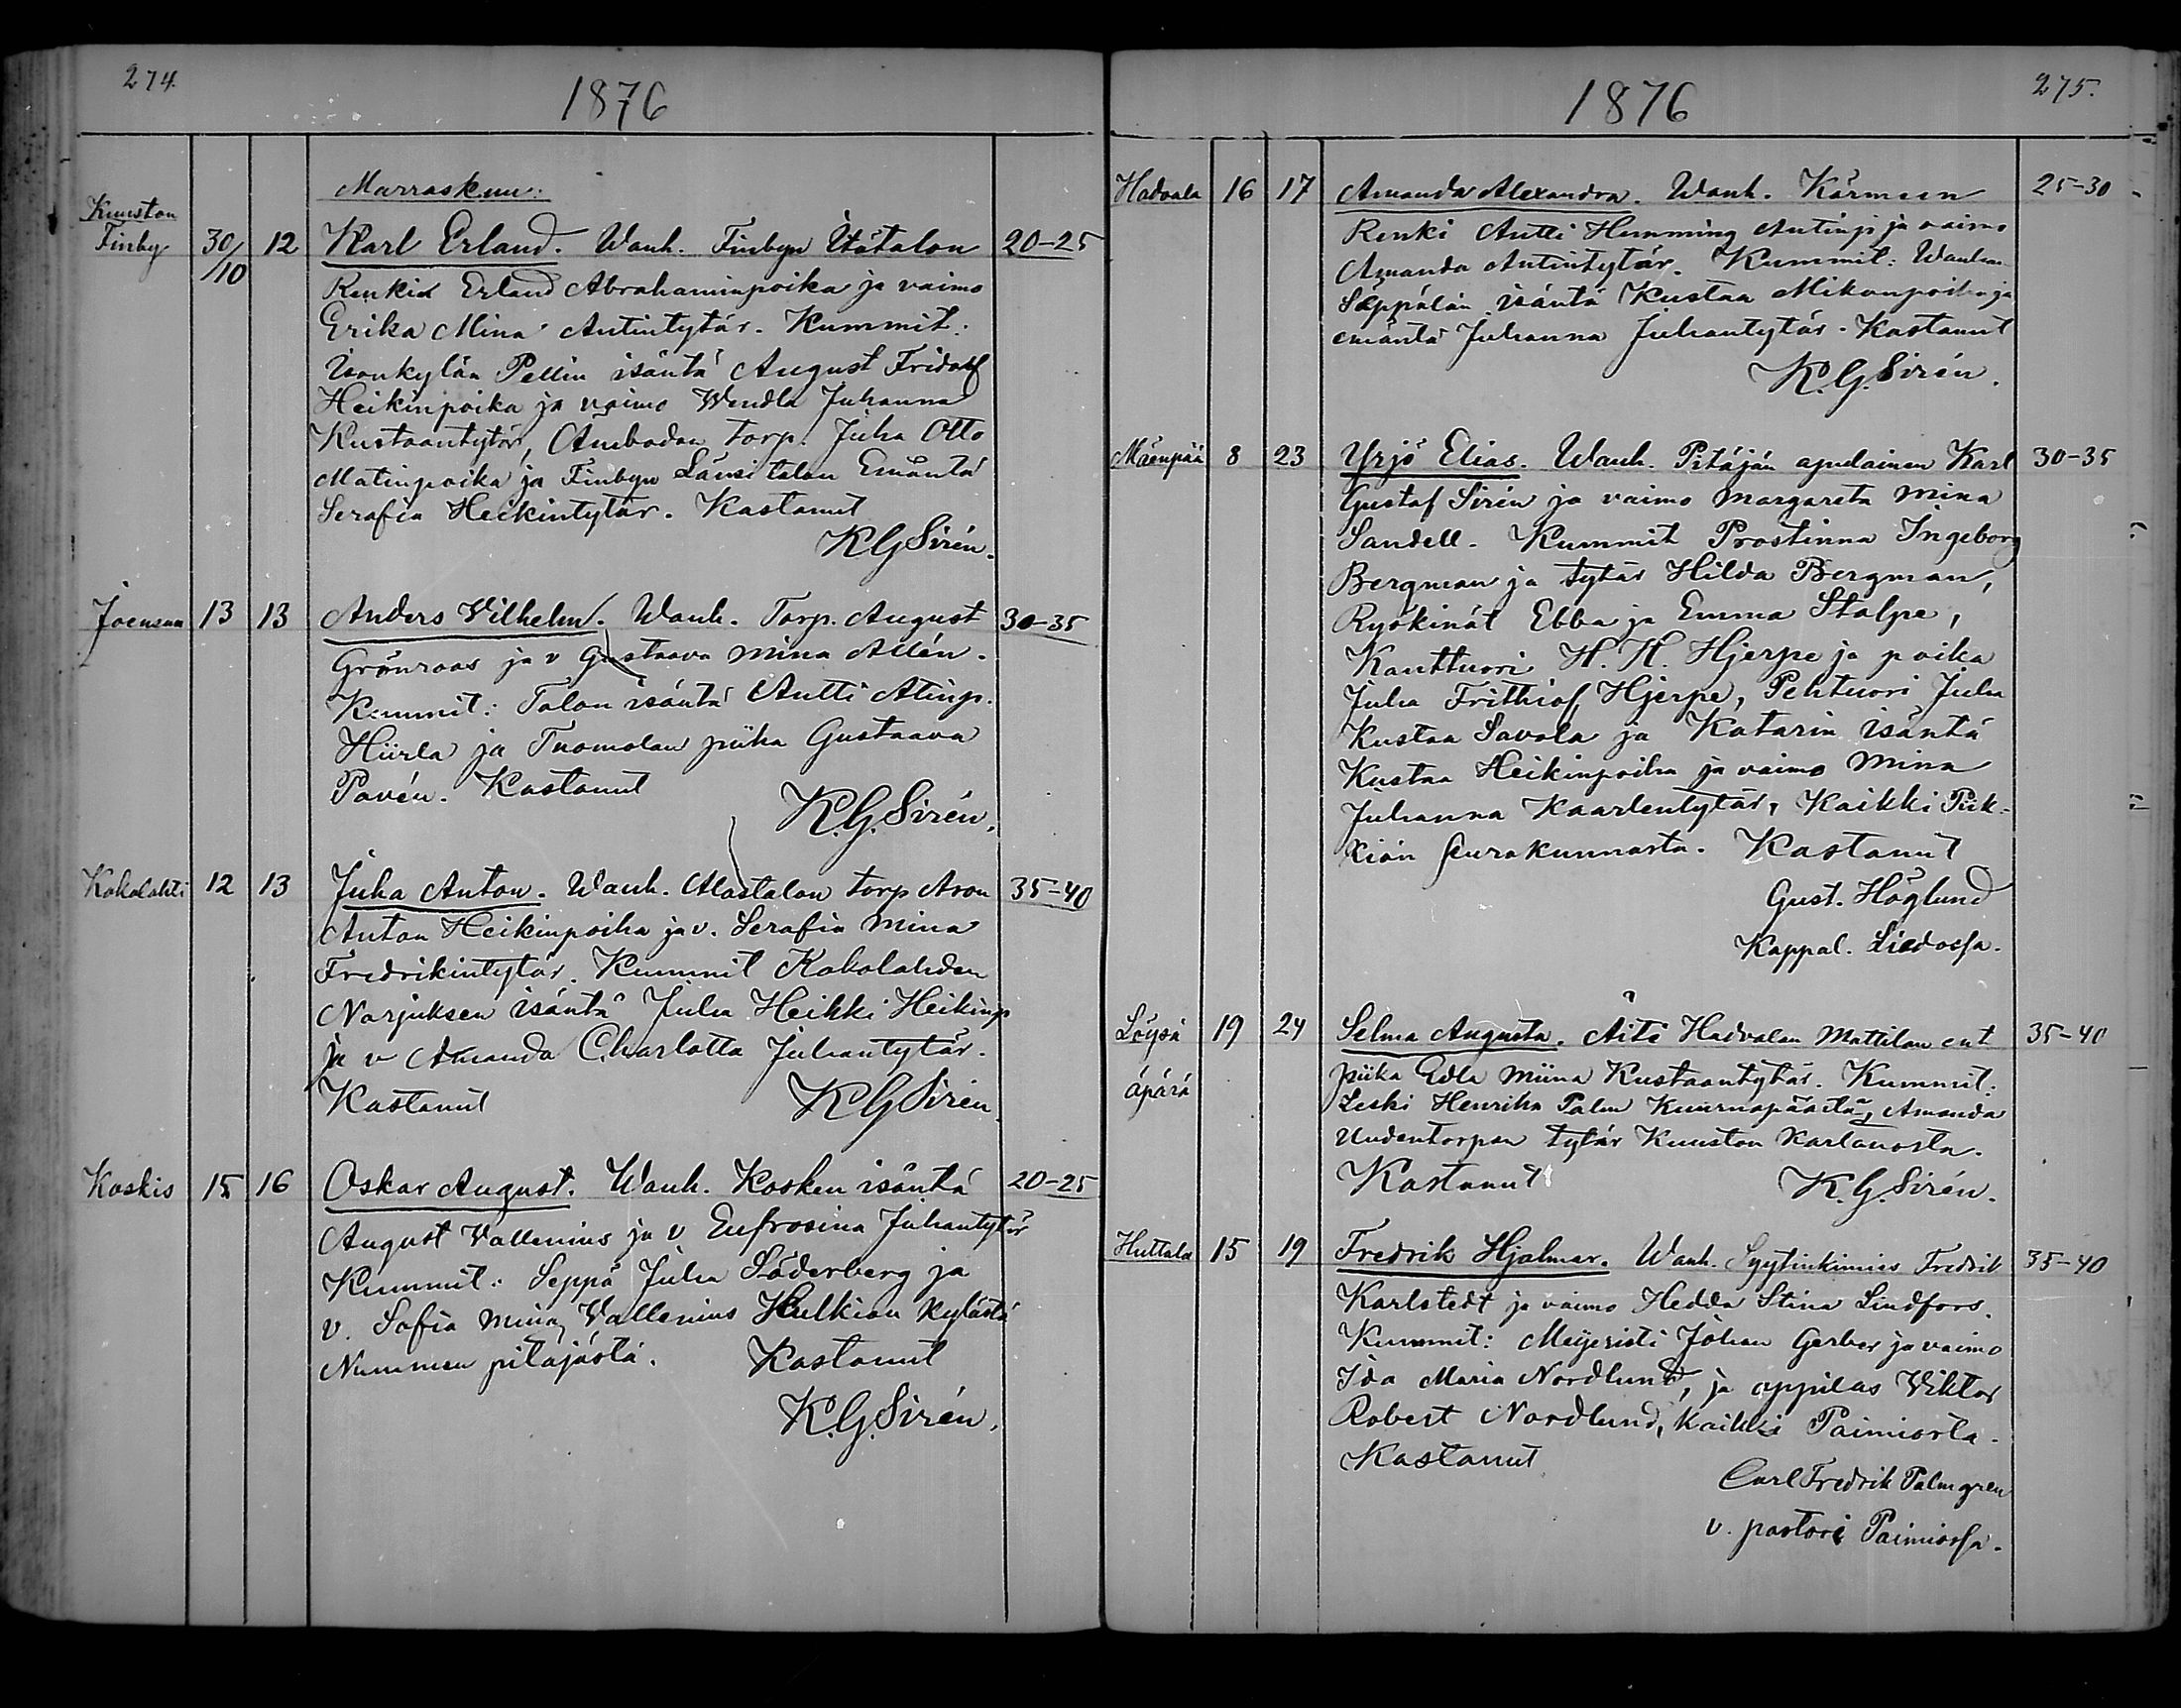 274.
1876
Marraskuu:
Kuuston
Finby 30/10 12 Karl Erland. Wanh. Finbyn Itätalon 20-25
Renki Erland Abrahaminpoika ja vaimo
Erika Mina Antintytär. Kummit:
Isonkylän Pellin isäntä August Fridolf
Heikinpoika ja vaimo Wendla Juhanna
Kustaantytär, Ambodan torp. Juha Otto
Matinpoika ja Finbyn Länsitalon Emäntä
Serafia Heikintytär. Kastanut
KGSirén.
Joensuu 13 13 Anders Vilhelm. Wanh. Torp. August 30-35
Grönroos ja v Gustaava Mina Alén.
Kummit: Talon isäntä Antti Antinp.
Hiirla ja Tuomolan piika Gustaava
Pavén. Kastanut
K.G.Sirén.
Kokolahti 12 13 Juha Anton. Wanh. Alastalon torp Aron 35-40
Anton Heikinpoika ja v. Serafia Mina
Fredrikintytär. Kummit Kokolahden
Norjuksen isäntä Juha Heikki Heikinp
ja v Amanda Charlotta Juhantytär.
Kastanut KGSirén.
Koskis 15 16 Oskar August. Wanh. Kosken isäntä 20-25
August Vallenius ja v Eufrosina Juhantytär
Kummit: Seppä Juha Söderberg ja
v. Sofia Mina Vallenius Hulkion kylästä
Nummen pitäjästä. Kastanut
K.G.Sirén.
1876
275.
Hadvala 16 17 Amanda Alexandra. Wanh. Kärmeen 25-30
Renki Antti Humming Antinp ja vaimo
Amanda Antintytär. Kummit: Wanhan
Seppälän isäntä Kustaa Mikonpoika ja
emäntä Juhanna Juhantytär. Kastanut
K.G.Sirén.
Mäenpää 8 23 Yrjö Elias. Wanh. Pitäjän apulainen Karl 30-35
Gustaf Sirén ja vaimo Margareta Mina
Sandell. Kummit Prostinna Ingeborg
Bergman ja tytär Hilda Bergman,
Ryökinät Ebba ja Emma Stolpe,
Kanttuori H. H. Hjerpe ja poika
Juha Frithiof Hjerpe, Pehtuori Juha
Kustaa Savola ja Katarin isäntä
Kustaa Heikinpoika ja vaimo Mina
Juhanna Kaarlentytär, Kaikki Piik-
kiön seurakunnasta. Kastanut
Gust. Höglund
Kappal. Liedossa.
Löysä 19 24 Selma Augusta. Äiti Hadvalan Mattilan ent 35-40
äpärä piika Edla Miina Kustaantytär. Kummit:
Leski Henrika Palm Kuurnapäästä, Amanda
Uudentorpan tytär Kuuston Karlanosta.
Kastanut K.G.Sirén.
Huttala 15 19 Fredrik Hjalmar. Wanh. Syytinkimies Fredrik 35-40
Karlstedt ja vaimo Hedda Stina Lindfors.
Kummit: Meijeristi Johan Gerber ja vaimo
Ida Maria Nordlund, ja oppilas Viktor
Robert Nordlund, Kaikki Paimiosta.
Kastanut
Carl Fredrik Palmgren
v. pastori Paimiossa.